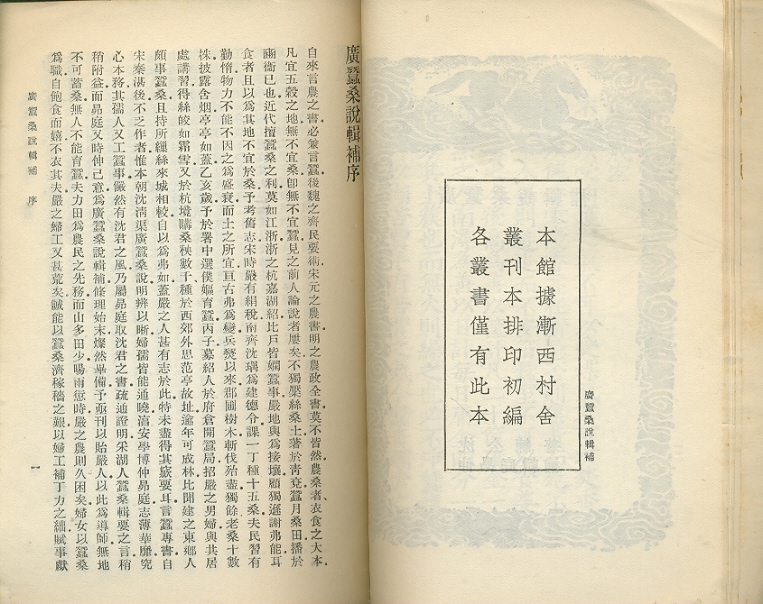 本館據漸西村舍
叢刊本排印初編
各叢書僅有此本
廣蠶桑說輯補
廣蠶桑說輯補序
自來言農之書必兼言蠶後魏之齊民要術宋元之農書明之農政全書莫不皆然農桑者衣食之大本
凡宜五穀之地無不宜桑卽無不宜蠶見之前人論說者屢矣不獨檿絲桑土著於靑兗蠶月桑田播於
豳衞已也近代擅蠶桑之利莫如江浙浙之杭嘉湖紹比戶皆嫻蠶事嚴地與爲接壤顧獨遜謝弗能耳
食者且以爲其地不宜於桑予考舊志宋時嚴有絹稅南齊沈瑀爲建德令課一丁種十五桑夫民習有
勤惰物力不能不因之爲盛衰而土之所宜亘古弗爲變兵燹以來郡圃樹木斬伐殆盡獨餘老桑十數
株披露含烟亭亭如蓋乙亥歲予於署中選僕嫗育蠶丙子募紹人於府倉開蠶局招嚴之男婦與其居
處講習得絲皎如霜雪又於杭境購桑秧數千種於西郊外思范亭故址逾年可成林比聞建之東鄉人
頗事蠶桑且持所繅絲來城相較自以爲弗如蓋嚴之人甚有志於此特未盡得其竅要耳言蠶專書自
宋秦湛後不乏作者惟本朝沈淸渠廣蠶桑說明辨以晰婦孺皆能通曉淳安學博仲昴庭志薄華膴究
心本務其孺人又工蠶事儼然有沈君之風乃屬昴庭取沈君之書疏通證明采湖人蠶桑輯要之言稍
稍附益而昴庭又時伸己意爲廣蠶桑說輯補條理始末燦然畢備予亟刊以貽嚴人以此爲導師無地
不可蓄桑無人不能育蠶夫力田爲農民之先務而山多田少暘雨愆時嚴之農則久困矣婦女以蠶桑
爲職自飽食而嬉不衣其夫嚴之婦工又甚荒矣誠能以蠶桑濟稼穡之艱以婦工補丁力之絀賦事獻
廣蠶桑說輯補 序
一